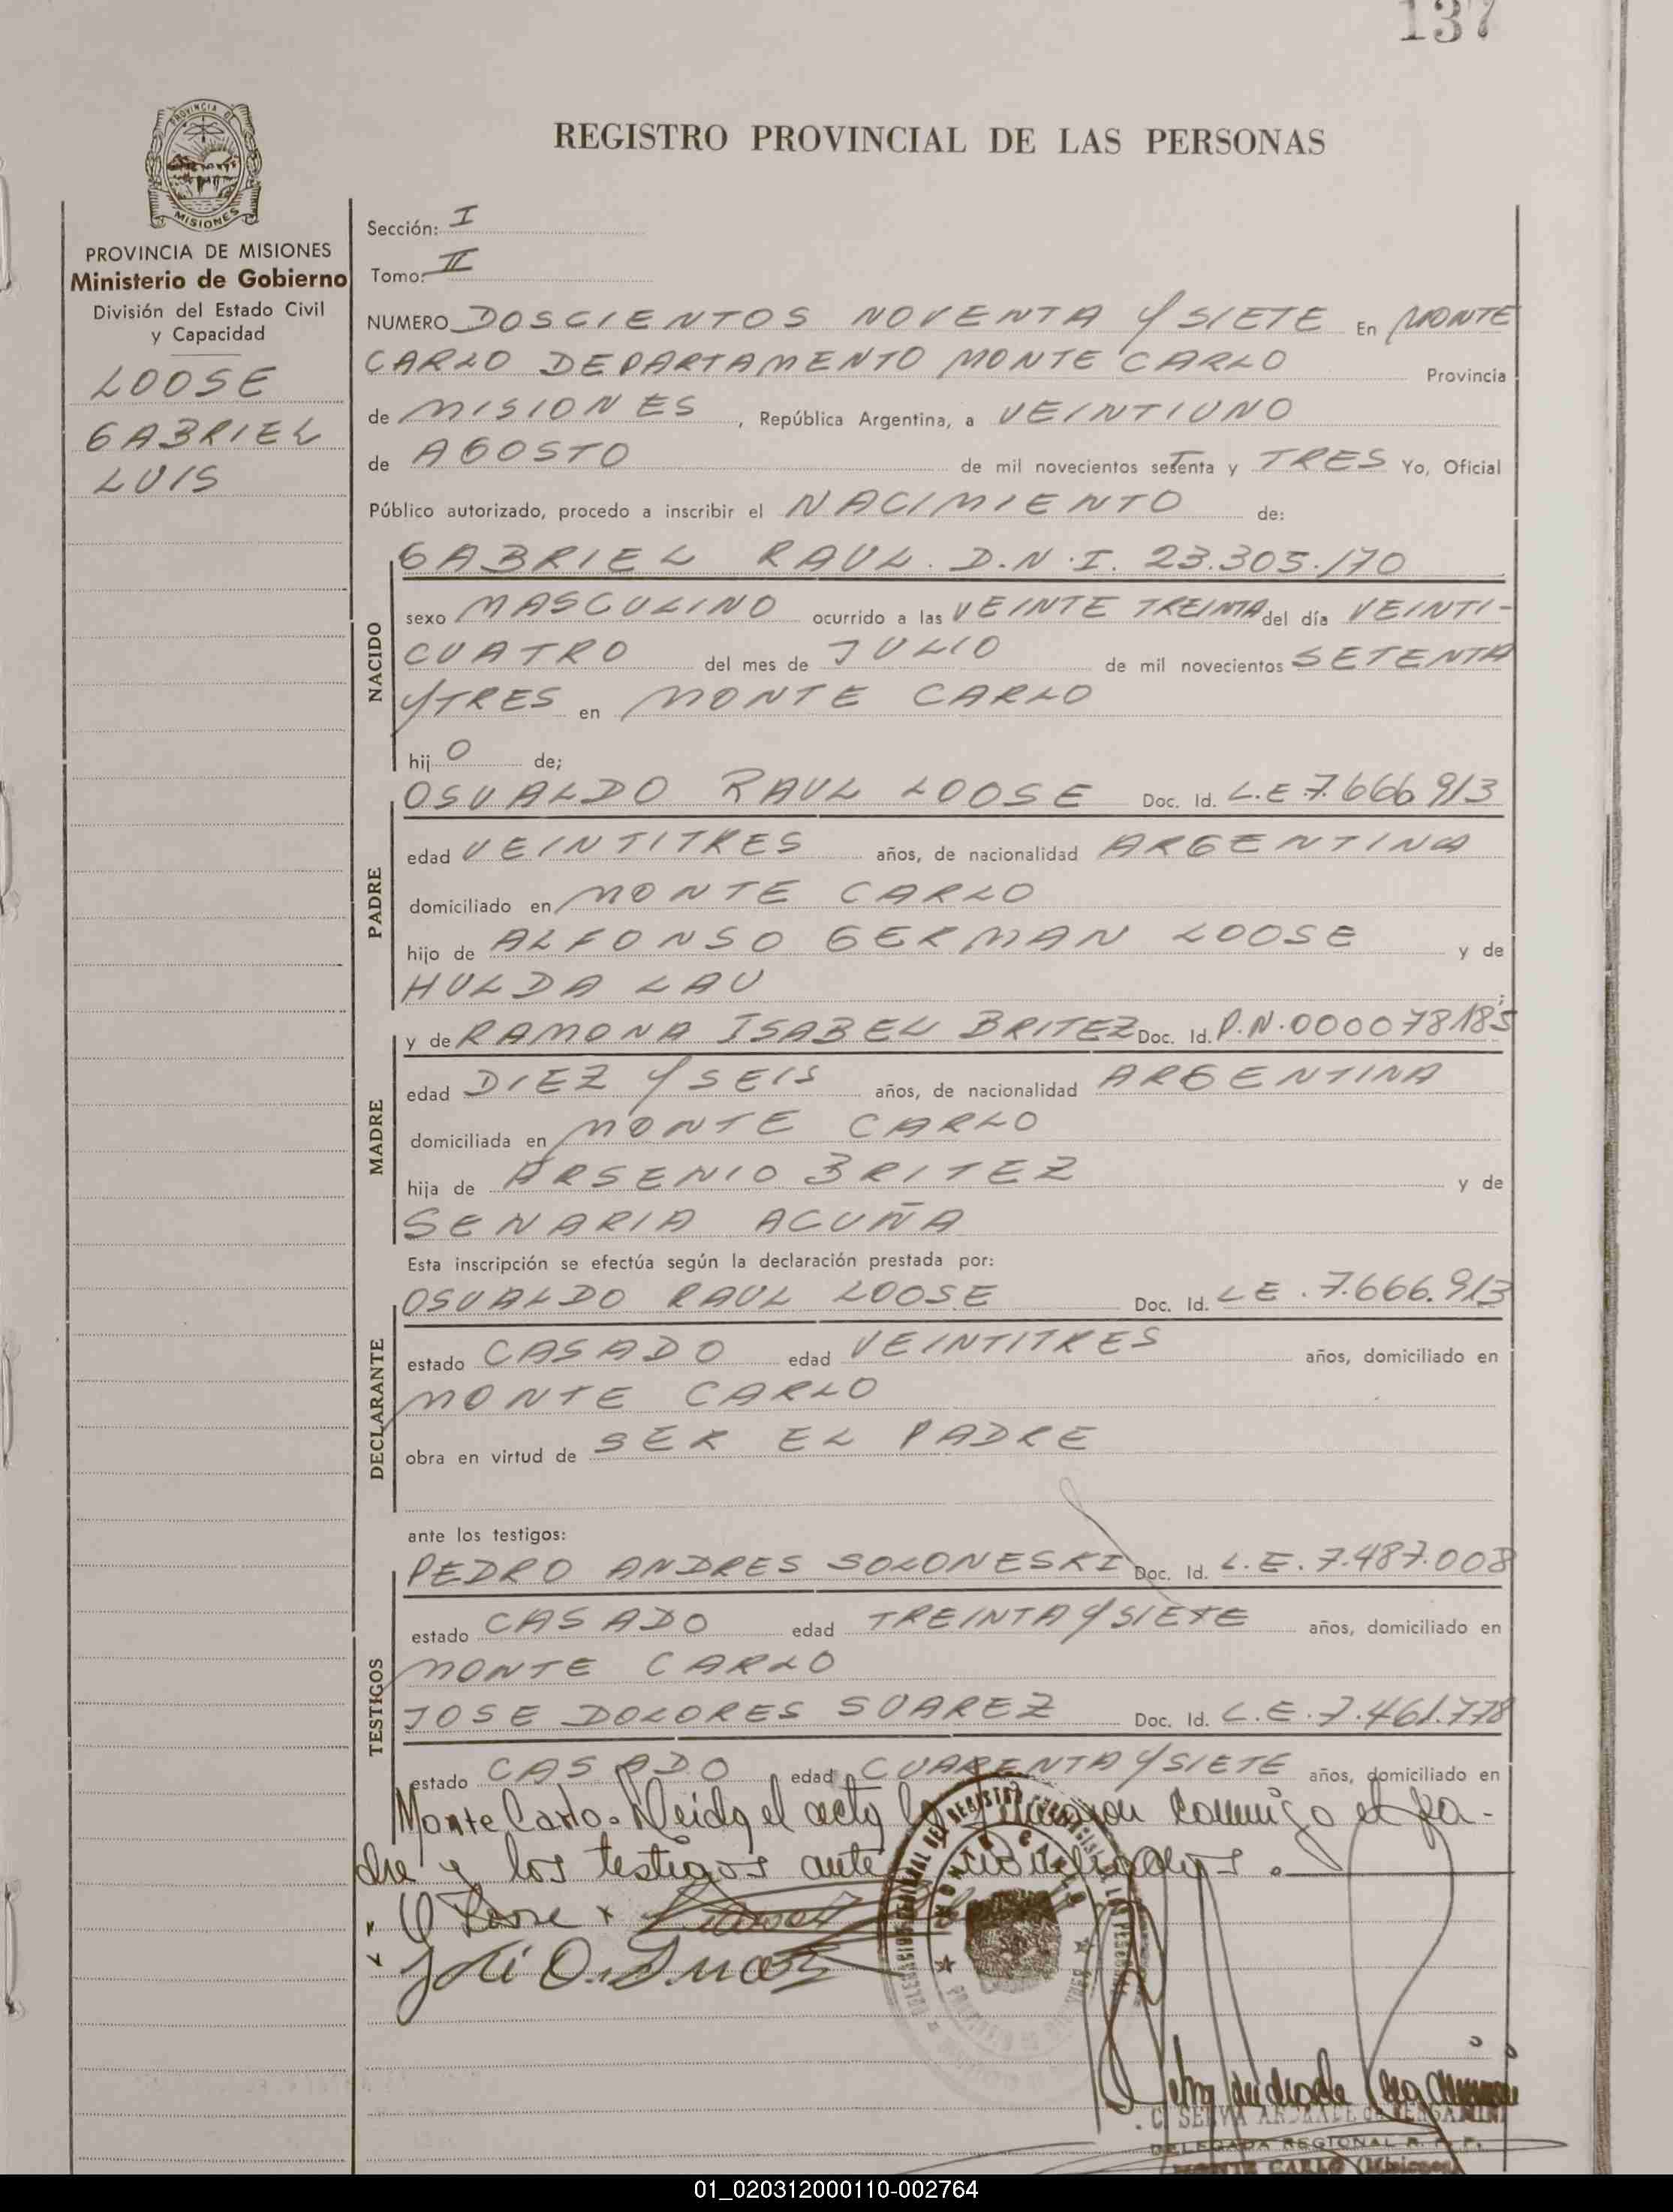 137
PROVINCIA DE
MISIONES
REGISTRO PROVINCIAL DE LAS PERSONAS
PROVINCIA DE MISIONES
Ministerio de Gobierno
División del Estado Civil
y Capacidad
LOOSE
GABRIEL
LUIS
Sección: I
Tomo: II
NUMERO DOSCIENTOS NOVENTA Y SIETE En MONTE
CARLO DEPARTAMENTO MONTE CARLO Provincia
de MISIONES, República Argentina, a VEINTIUNO
de AGOSTO de mil novecientos setenta y TRES Yo, Oficial
Público autorizado, procedo a inscribir el NACIMIENTO de:
NACIDO
GABRIEL RAUL. D.N.I. 23.305.170
sexo MASCULINO ocurrido a las VEINTE TREINTA del día VEINTI-
CUATRO del mes de JULIO de mil novecientos SETENTA
Y TRES en MONTE CARLO
hij O de;
PADRE
OSVALDO RAUL LOOSE Doc. Id. L.E 7.666 913
edad VEINTITRES años, de nacionalidad ARGENTINA
domiciliado en MONTE CARLO
hijo de ALFONSO GERMAN LOOSE y de
HULDA LAU
MADRE
y de RAMONA ISABEL BRITEZ Doc. Id. P.N.000078185
edad DIEZ Y SEIS años, de nacionalidad ARGENTINA
domiciliada en MONTE CARLO
hija de ARSENIO BRITEZ y de
SENARIA ACUÑA
Esta inscripción se efectúa según la declaración prestada por:
DECLARANTE
OSVALDO RAUL LOOSE Doc. Id. LE. 7.666.913
estado CASADO edad VEINTITRES años, domiciliado en
MONTE CARLO
obra en virtud de SER EL PADRE
ante los testigos:
TESTIGOS
PEDRO ANDRES SOLONESKI Doc. Id. L.E. 7.487.008
estado CASADO edad TREINTA Y SIETE años, domiciliado en
MONTE CARLO
JOSE DOLORES SUAREZ Doc. Id. L.E. 7.461.778
estado CASADO edad CUARENTA Y SIETE años, domiciliado en
Monte Carlo. Leida el acta la firmaron conmigo el pa-
dre y los testigos ante
O Loose x
MONTE CARLO
C. SELVA ANDRADE de
DELEGADA REGIONAL R. P. P.
MONTE CARLO (Misiones)
01_020312000110-002764